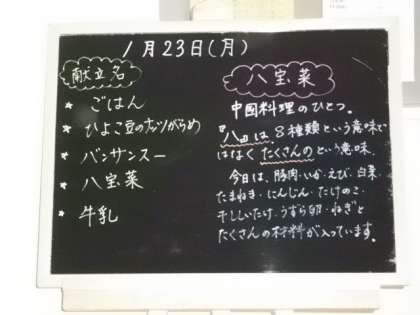 1月23日(月)
献立名
★ ごはん
★ ひよこ豆のナッツがらめ
★ バンサンスー
★ 八宝菜
★ 牛乳
八宝菜
中国料理のひとつ。
『八』は、8種類という意味で
はなく たくさんの という意味。
今日は、豚肉・いか・えび・白菜・
たまねぎ・にんじん・たけのこ・
干ししいたけ・うずら卵・ねぎと
たくさんの材料が入っています。